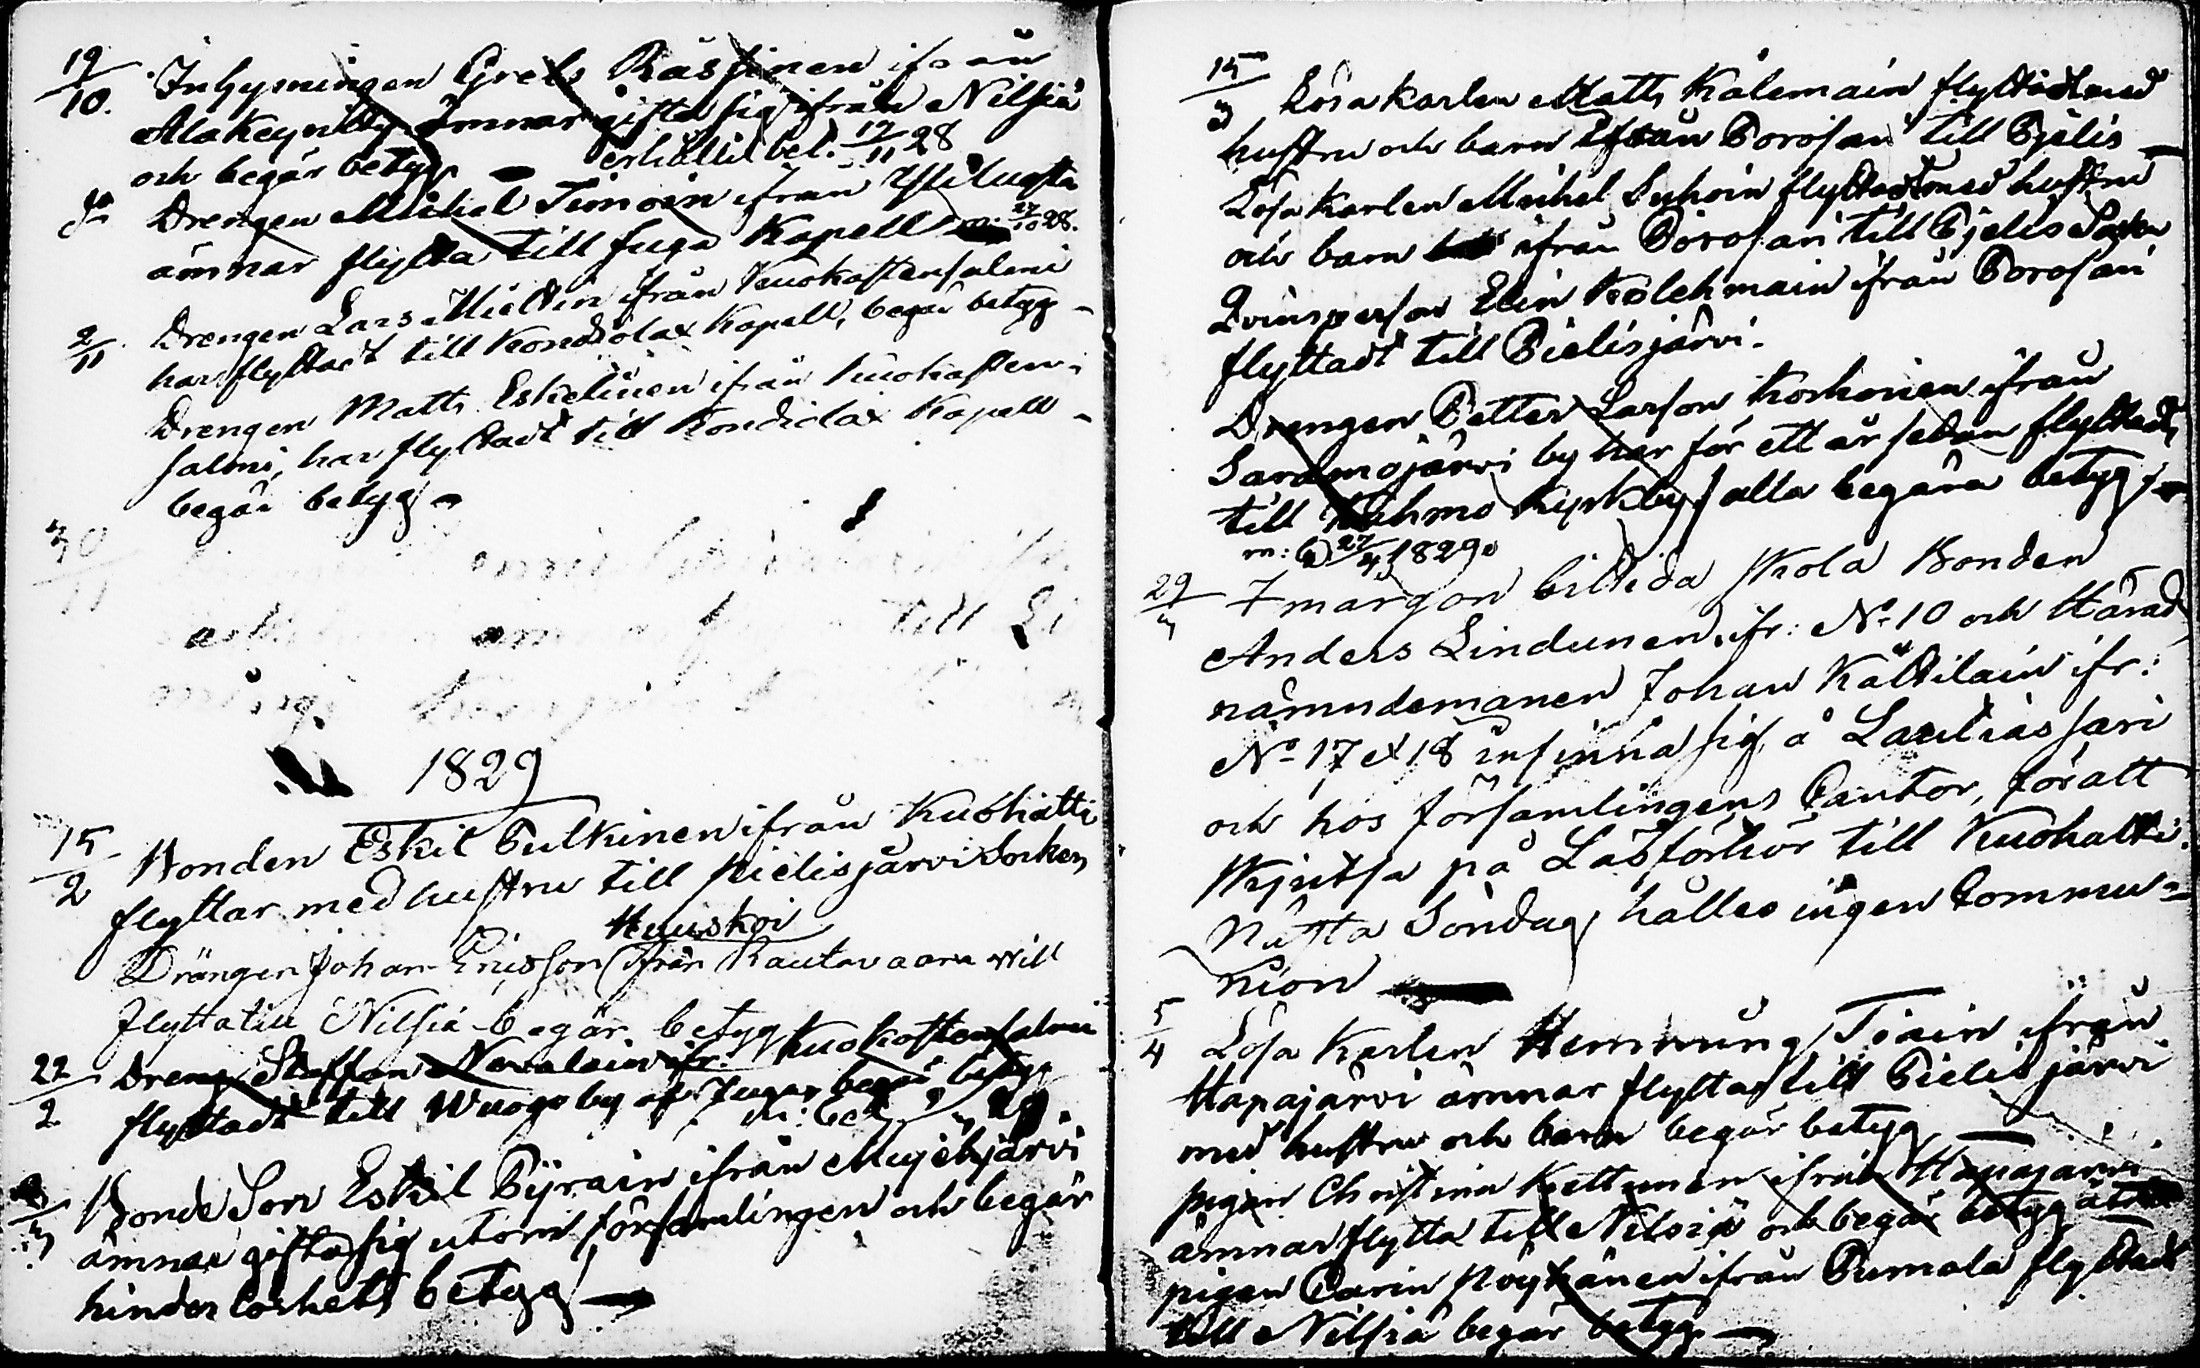 19/10. Inhysningen Greta Räsäinen ifrån
Alakeyritty ämnar gifta sig ifrån Nilsiä
och begär betyg. — erhållit bet. 17/11 28
do Drengen Michel Timoin ifrån Ylilugsta
ämnar flytta till Juga Kapell m: 27/10 28.
2/11 Drengen Lars Miettin ifrån Kuokastensalmi
har flyttadt till Kondiolax Kapell, begär betyg –
Drengen Matts Eskelinen ifrån Kuokasten-
salmi, har flyttadt till Kondiolax Kapell –
begär betyg –
30/11
till Li
1829
15/2 Bonden Eskil Pulkinen ifrån Kuohatti
flyttar med hustru till Pielisjärvi Socken
Huuskoi
Drängen Johan Ericsson ifrån Rautavaara will
flytta till Nilsiä begär betyg
22/2 Dreng Staffan Nevalain ifr: Kuokastensalmi
flyttadt till Wuogo by af Juga, begär betyg
m: bet
/3 Bonde Son Eskil Pyrain ifrån Mujehjärvi
ämnar gifta sig utom församlingen och begär
hinderlöshets betyg —
15/3 Lösa karlen Matts Kålemain flyttadt med
hustru och barn ifrån Porosari till Pjelis –
Lösa Karlen Michel Suhoin flyttadt med hustru
och barn ifrån Porosari till Pjelis Soken
Qvinsperson Elin Kolehmain ifrån Porosari
flyttadt till Pielisjärvi.
Drengen Petter Larson Korhonen ifrån
Saramojärvi by har för ett år sedan flyttadt
till Kuhmo Kyrkby, alla begära betyg, –
m: b 27/4 1829.
29/3 I margon bittida skola Bonden
Anders Lindunen, ifr: No 10 och Härads
nämndemanen Johan Kältilain ifr:
No 17 et 18 infinna sig å Lautiassari
och hos församlingens Cantor, för att
skjutsa på Läsförhör till Kuohatti.
Nästa Söndag, hålles ingen Commu-
nion —
5/4 Lösa Karlen Hemming Tiain ifrån
Hapajärvi ämnar flytta till Pielisjärvi
med hustru och barn begär betyg
pigan Christina Kettunen ifrån Hapajärvi
ämnar flytta till Nilsiä och begär betyg
pigan Carin Pöyhänen ifrån Pumala flyttadt
till Nilsiä begär betyg. —